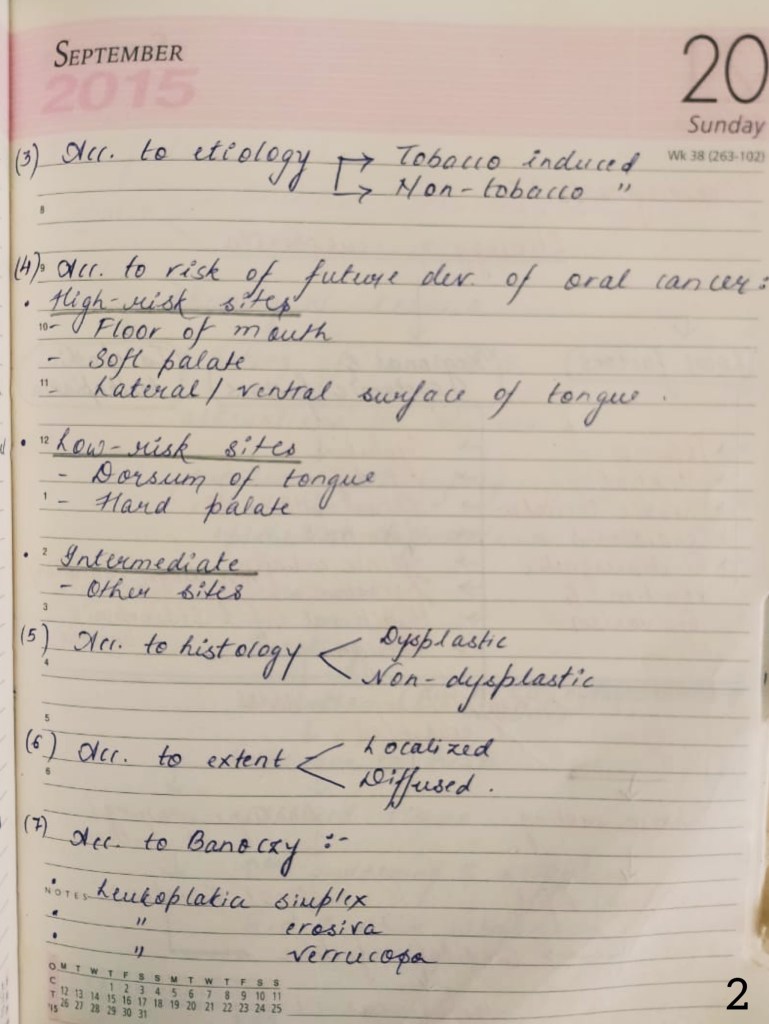 SEPTEMBER
2015
20
Sunday
Wk 38 (263-102)
(3) Acc. to etiology → Tobacco induced
→ Non-tobacco "
8
(4) 9 Acc. to risk of future dev. of oral cancer:
• High-risk sites
10 - Floor of mouth
- Soft palate
11 - Lateral/ ventral surface of tongue.
• 12 Low-risk sites
- Dorsum of tongue
1 - Hard palate
• 2 Intermediate
- Other sites
3
(5) Acc. to histology < Dysplastic
4 Non-dysplastic
5
(6) Acc. to extent < Localized
6 Diffused.
(7) Acc. to Banoczy :-
NOTES • Leukoplakia simplex
• " erosiva
• " verrucopa
OCT '15
M T W T F S S M T W T F S S
1 2 3 4 5 6 7 8 9 10 11
12 13 14 15 16 17 18 19 20 21 22 23 24 25
26 27 28 29 30 31
2